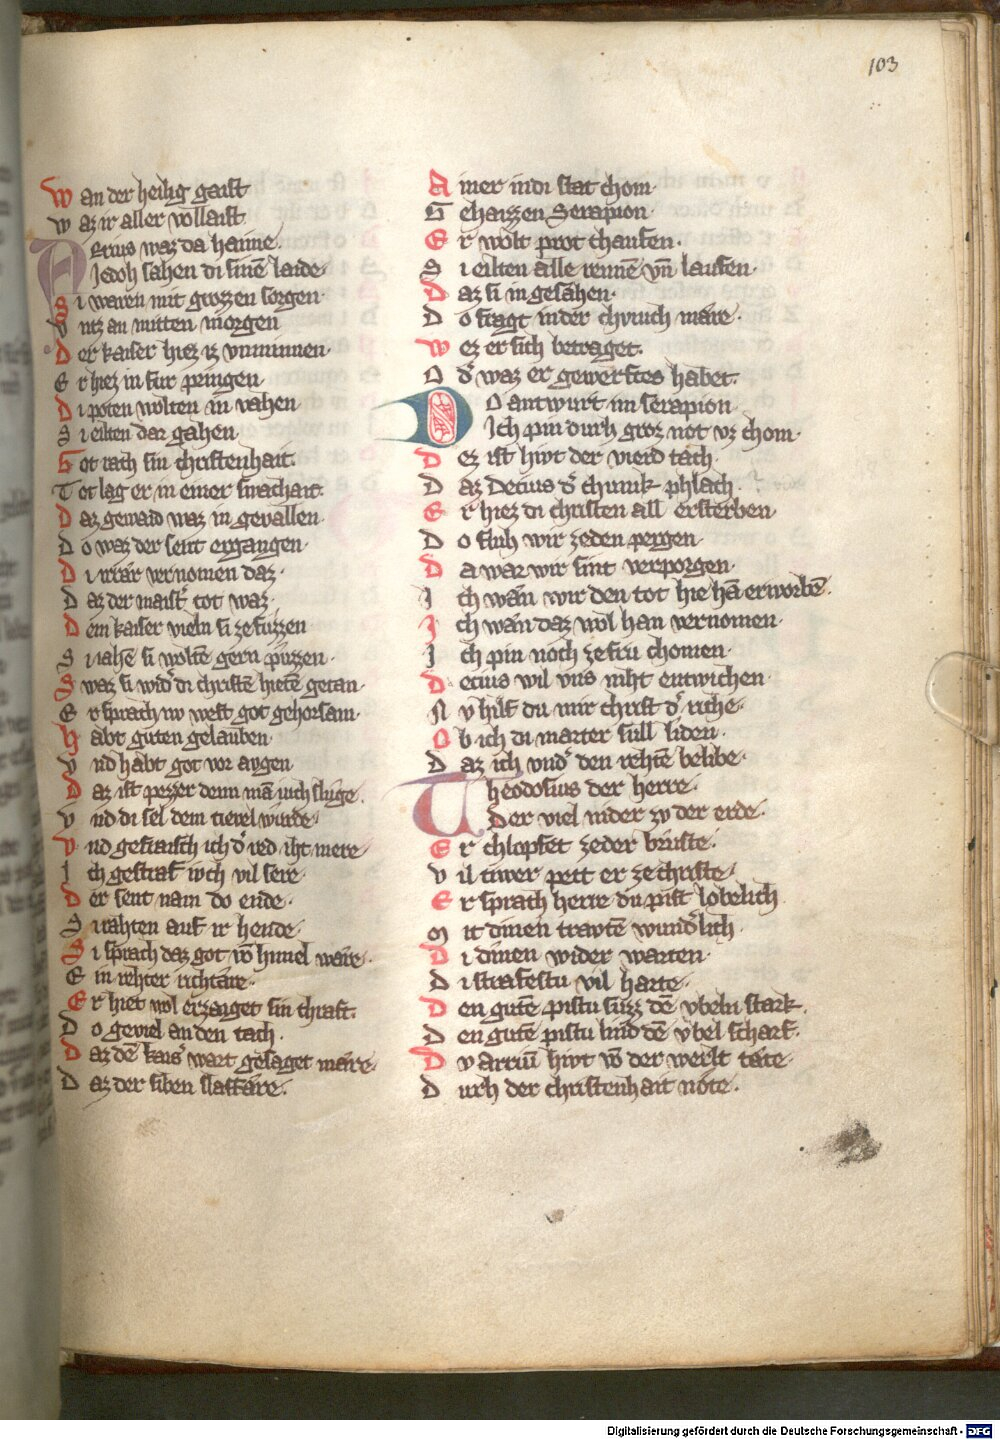 103
W an der heilig gaist
w az ir aller vollaist
A Erius waz da haime.
Jedoh sahen di sinē laide·
S i waren mit grozzen sorgen·
V ntz an mitten morgen
D er kaiser hiez iz vnminnen·
E r hiez in fur pringen·
D i poten wolten in vahen·
S i eilten dar gahen·
G ot rach sin christenhait.
T ot lag er in einer smachait·
D az gewaid waz in gevallen·
D o waz der sent ergangen·
D i vrær vernomen daz·
D az der maist̓ tot waz·
D em kaiser vieln si ze fuzzen
S i iahē si woltē gern puzzen·
S waz si wid̓ di christē hietē getan·
E r sprach nv west got gehorsam·
H abt guten gelauben·
V nd habt got vor avgen
D az ist pezzer denn mā iuch sluge.
V nd di sel dem tievel wurde·
V nd gefraisch ich d̓ red iht mere·
I ch gestraf iwch vil sere·
D er sent nam do ende·
S i rahten auf ir hende·
S i sprach daz got vō himel wære·
E in rehter richtære·
E r hiet wol erzaiget sin chraft.
D o geviel an den tach·
D az dē kais̓ wart gesaget mære·
D az der siben slaffære·
A iner in di stat chom·
G ehaizzen Serapion·
E r wolt prot chaufen·
S i eilten alle rennē vn̄ laufen·
D az si in gesahen·
D o fragt in der chvnich mære·
W ez er sich betraget.
O d̓ waz er gewerftes habet·
D O antwurt im serapion·
Ich pin durh groz not vz chom·
D ez ist hivt der vierd tach·
D az Decius d̓ chunik phlach·
E r hiez di christen all ersterben·
D o fluh wir ze den pergen·
D a waz wir sint verporgen·
I ch wān wir den tot hie hā erworbē·
I ch wān daz wol han vernomen·
I ch pin noch ze fru chomen·
D ecius wil vns niht entwichen·
N v hilf du mir christ d̓ riche·
O b ich di marter sull liden·
D az ich vnd̓ den rehtē belibe·
T heodosius der herre·
Der viel nider zv der erde·
E r chlopfet ze der bruste·
V il tiwer pett er ze christe·
E r sprach herre du pist lobelich
M it dinen travtē wund̓lich·
D i dinen wider warten·
D i strafestu vil harte·
D en gutē pistu suzz dē vbeln stark·
D en gutē pistu lind dē vbel scharf·
D v arriū hivt vō der werlt tæte·
D urh der christenhait nōte·
Digitalisierung gefördert durch die Deutsche Forschungsgemeinschaft - DFG